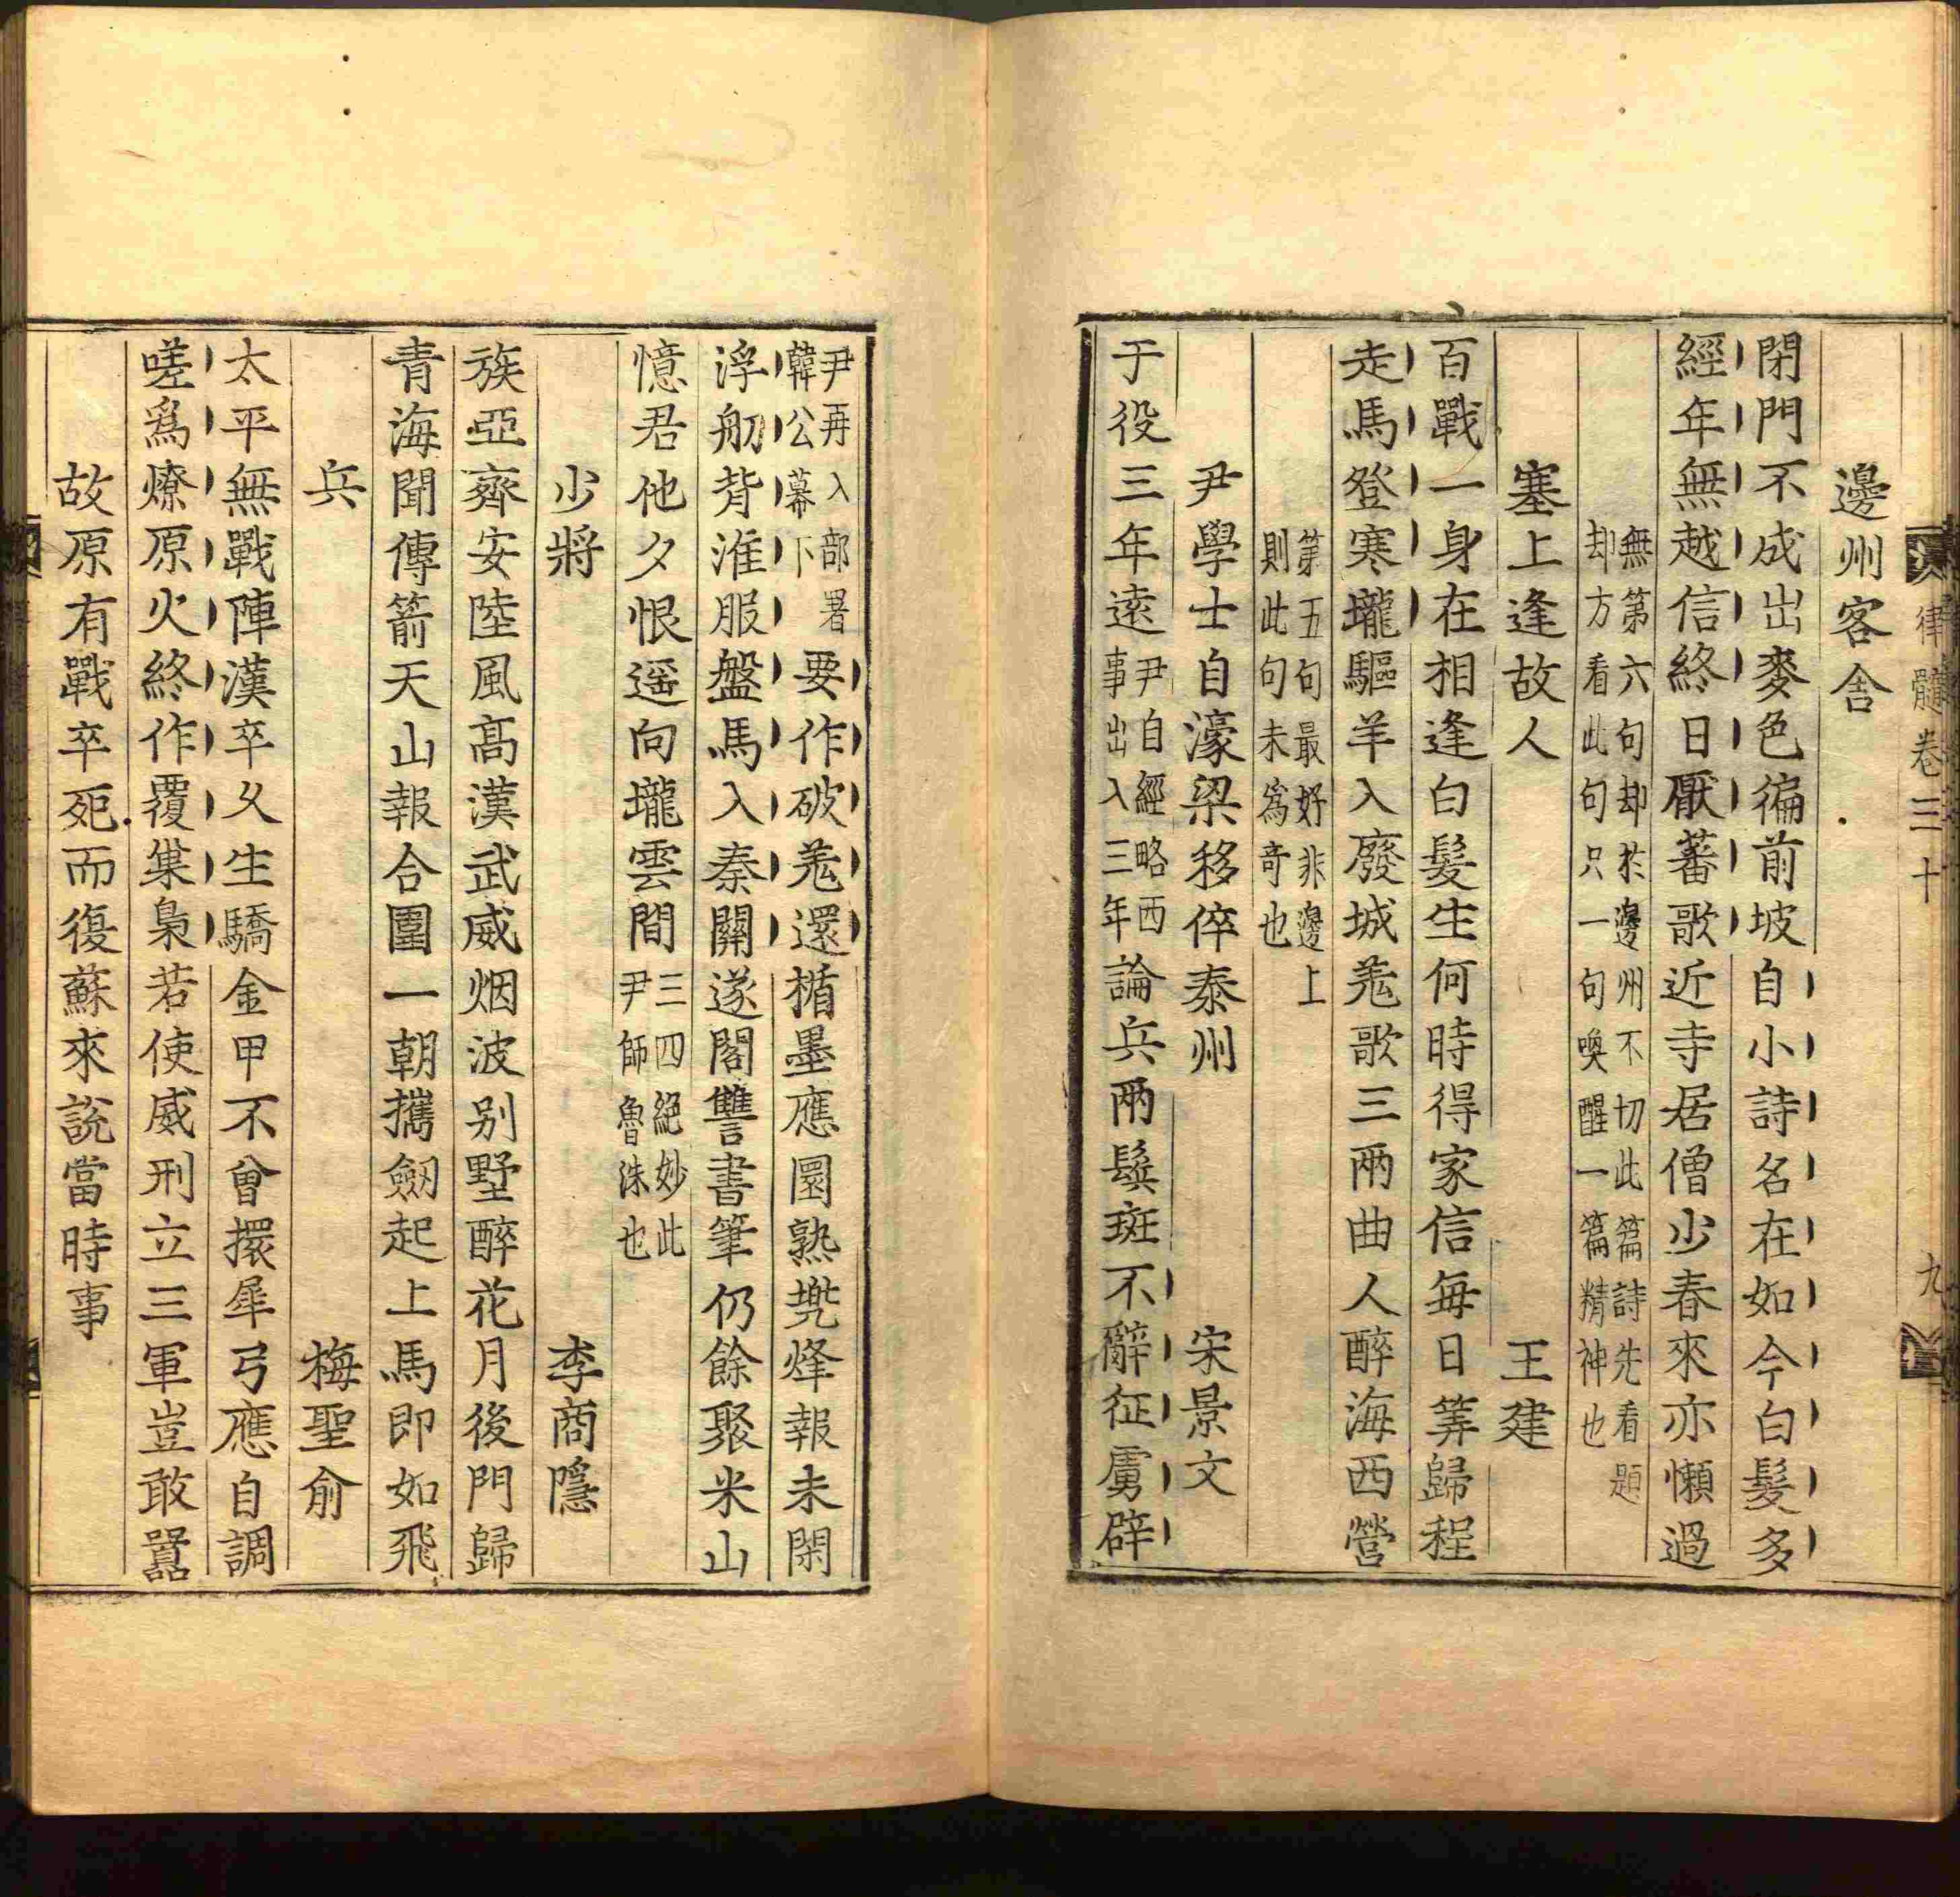 律髓卷三十
九
邊州客舍
閉門不成出麥色徧前坡自小詩名在如今白髮多
經年無越信終日厭蕃歌近寺居僧少春來亦懶過
無第六句却於邊州不切此篇詩先看題
却方看此句只一句喚醒一篇精神也
塞上逢故人
王建
百戰一身在相逢白髮生何時得家信每日筭歸程
走馬登寒壠驅羊入廢城羗歌三兩曲人醉海西營
第五句最好非邊上
則此句未為奇也
尹學士自濠梁移倅秦州
宋景文
于役三年遠
尹自經略西
事出入三年
論兵兩鬢斑不辭征虜辟
尹再入部署
韓公幕下
要作破羗還楯墨應圜熟㙮烽報未閑
浮舠背淮服盤馬入秦關遂閣讐書筆仍餘聚米山
憶君他夕恨遥向壠雲間
三四絕妙此
尹師魯洙也
少將
李商隱
族亞齊安陸風高漢武威烟波别墅醉花月後門歸
青海聞傳箭天山報合圍一朝攜劔起上馬即如飛
兵
梅聖俞
太平無戰陣漢卒乆生驕金甲不曾擐犀弓應自調
嗟為燎原火終作覆巢梟若使威刑立三軍豈敢囂
故原有戰卒死而復蘇來說當時事